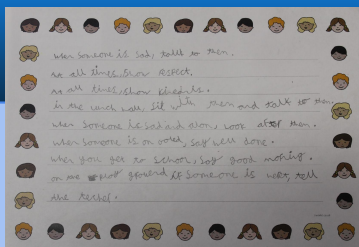 when someone is sad, talk to them.
At all times, show respect.
At all times, show kindness.
in the lunch hall, sit with them and talk to them.
when someone is sad and alon, look after them.
when someone is on, say well done.
when you get to school, say good morning.
on the ground if someone is hert, tell
the